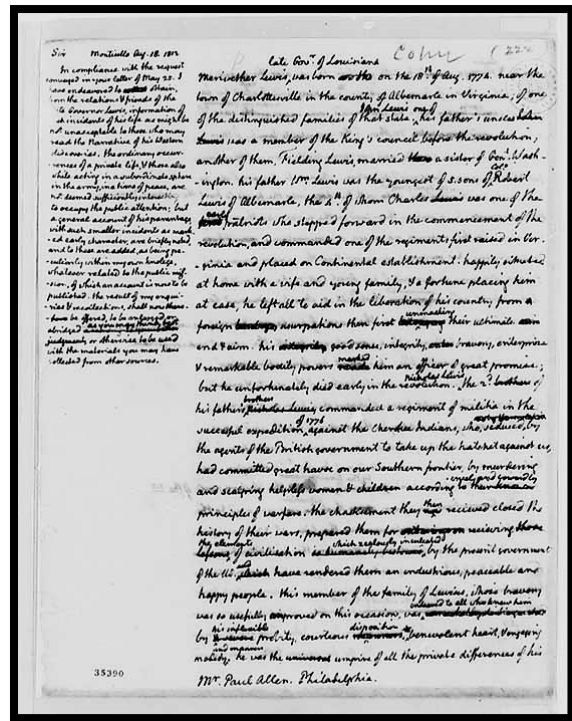 Sir Monticello Aug. 18. 1812
In compliance with the request
conveyed in your letter of May 25. I
have endeavored to obtain,
from the relations & friends of the
late Governor Lewis, information of
such incidents of his life as might be
not unacceptable to those who may
read the Narrative of his Western
discoveries. the ordinary occur-
-rences of a private life, & those also
while acting in a subordinate sphere
in the army, in a time of peace, are
not deemed sufficiently interesting
to occupy the public attention; but
a general account of his parentage
with such smaller incidents as mark-
-ed early character, are briefly noted,
and to these are added, as being pe-
-culiarly within my own knolege,
whatever related to the public mis-
-sion, of which an account is now to be
published. the result of my enqui-
-ries & recollections, shall now there-
-fore be offered, to be enlarged or
abridged as you may think best
judgment; or otherwise to be used
with the materials you may have
collected from other sources.
late Govr. of Louisiana
Copy
(222
Meriwether Lewis, was born on the 18th of Aug. 1774. near the
town of Charlottesville in the county of Albemarle in Virginia, of one
of the distinguished families of that state. John Lewis one of his father's uncles
was a member of the King's council before the revolution,
another of them, Fielding Lewis, married a sister of Genl. Wash-
-ington. his father Wm. Lewis was the youngest of 5. sons of Colo. Robert
Lewis of Albemarle, the 4th. of whom Charles was one of the
early patriots who stepped forward in the commencement of the
revolution, and commanded one of the regiments first raised in Vir-
-ginia and placed on Continental establishment. happily situated
at home with a wife and young family, & a fortune placing him
at ease, he left all to aid in the liberation of his country from a
foreign usurpations then first unmasking their ultimate
end & aim. his good sense, integrity, bravery, enterprize
& remarkable bodily powers marked him an officer of great promise;
but he unfortunately died early in the revolution. Nicholas Lewis the 2d. of
his father's brothers commanded a regiment of militia in the
succesful expedition of 1776 against the Cherokee Indians, who, seduced by
the agents of the British government to take up the hatchet against us,
had committed great havoc on our Southern frontier, by murdering
and scalping helpless women & children according to their cruel and cowardly
principles of warfare. the chastisement they then recieved closed the
history of their wars, prepared them for recieving
the elements of civilisation which zealously inculcated by the present government
of the US. have rendered them an industrious, peaceable and
happy people. this member of the family of Lewises, whose bravery
was so usefully proved on this occasion, was endeared to all who knew him
by his inflexible probity, courteous disposition, benevolent heart, & engaging
modesty and manners. he was the umpire of all the private differences of his
Mr. Paul Allen. Philadelphia.
35390